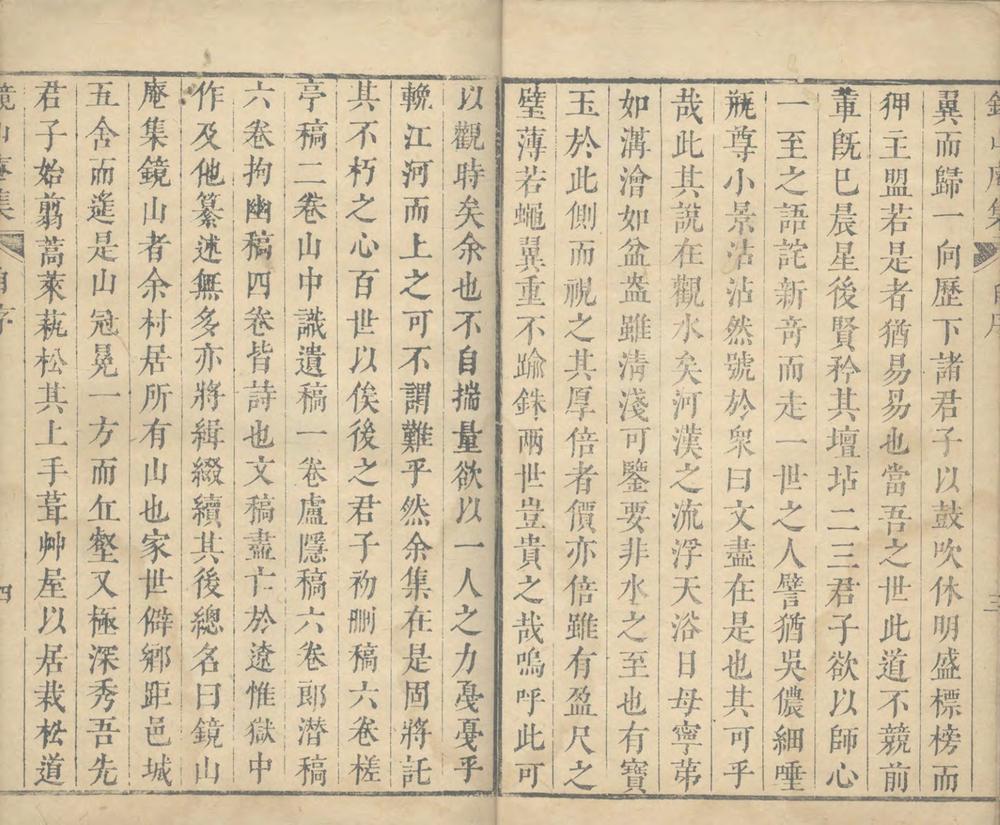 翼而歸一向歷下諸君子以鼓吹休明盛標榜而
狎主盟若是者猶易易也當吾之世此道不競前
軰旣已晨星後賢矜其壇坫二三君子欲以師心
一至之語詫新竒而走一世之人譬猶吳儂細唾
瓶尊小景沾沾然號於衆曰文盡在是也其可乎
哉此其說在觀水矣河漢之流浮天浴日母寧苐
如溝澮如盆盎雖淸淺可鑒要非水之至也有寶
玉於此側而視之其厚倍者價亦倍雖有盈尺之
璧薄若蠅翼重不踰銖兩世豈貴之哉嗚呼此可
以觀時矣余也不自揣量欲以一人之力戞戞乎
輓江河而上之可不謂難乎然余集在是固將託
其不朽之心百世以俟後之君子初刪稿六卷槎
亭稿二卷山中識遺稿一卷盧隱稿六卷郎潛稿
六卷拘幽稿四卷皆詩也文稿盡亡於遼惟獄中
作及他纂述無多亦將緝綴續其後總名曰鏡山
庵集鏡山者余村居所有山也家世僻鄉距邑城
五舍而遙是山冠冕一方而丘壑又極深秀吾先
君子始翦蒿萊蓺松其上手葺艸屋以居栽松道
鏡山庵集
自序
四
三